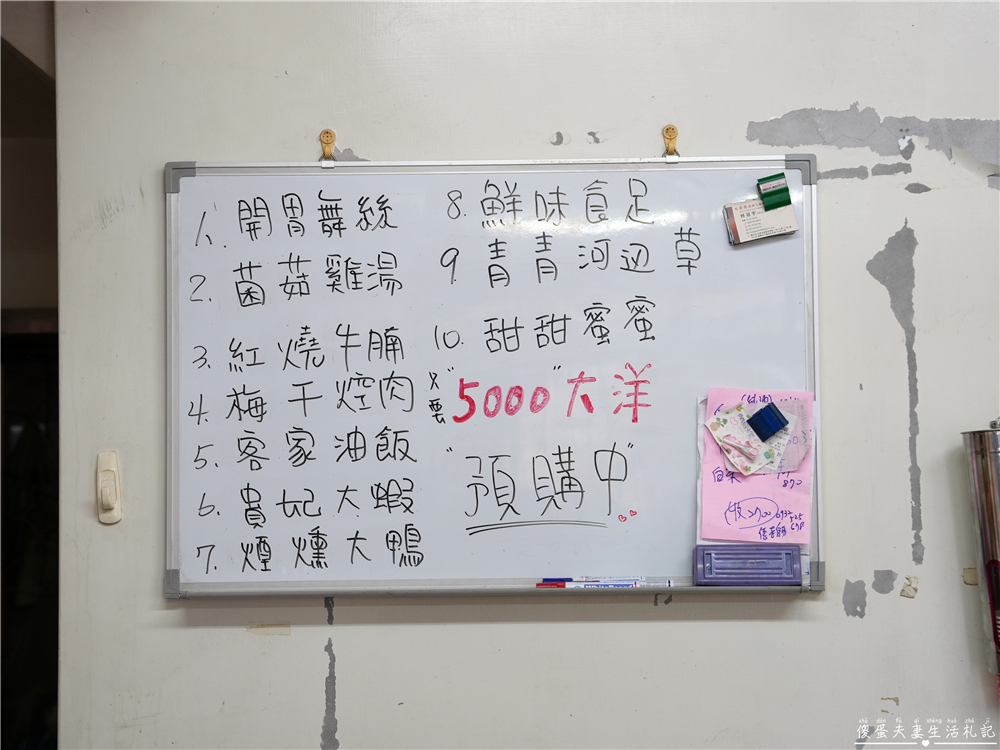 1. 開胃舞絲
2. 菌菇雞湯
3. 紅燒牛腩
4. 梅干焢肉
5. 客家油飯
6. 貴妃大蝦
7. 煙燻大鴨
8. 鮮味食足
9. 青青河辺草
10. 甜甜蜜蜜
只要"5000"大洋
"預購中"
870
傻蛋夫妻生活札記